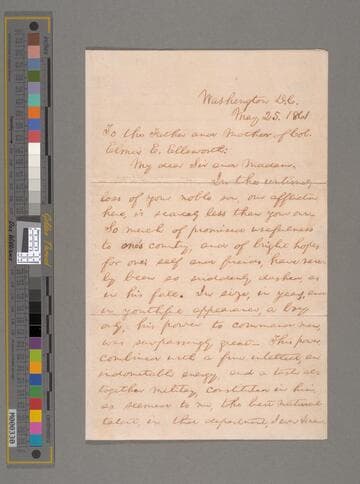 Washington D.C.
May 25. 1861
To the Father and Mother of Col.
Elmer E. Ellsworth:
My dear Sir and Madam,
In the untimely
loss of your noble son, our affliction
here, is scarcely less than your own.
So much of promised usefulness
to one's country, and of bright hopes
for one's self and friends, have rarely
been so suddenly dashed, as
in his fall. In size, in years, and
in youthful appearance, a boy
only, his power to command men,
was surpassingly great. This power
combined with a fine intellect, an
indomitable energy, and a taste al-
together military, constituted in him,
as seemed to me, the best natural
talent, in that department, I ever knew.
M000330